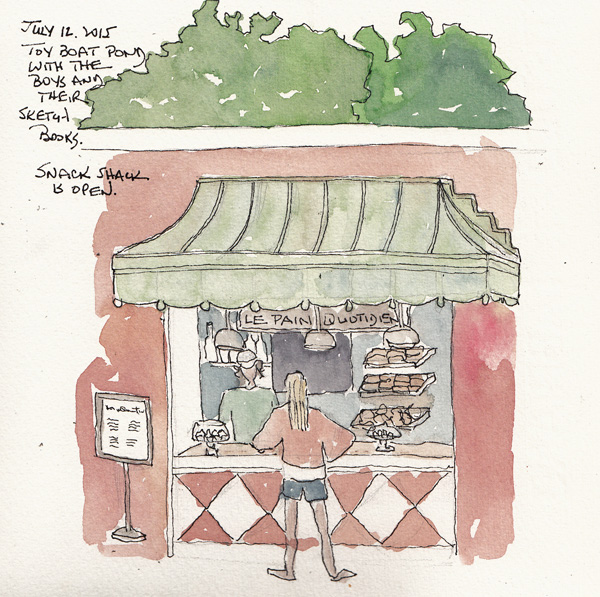 JULY 12. 2015
TOY BOAT POND
WITH THE
BOYS AND
THEIR
SKETCH
BOOKS.
SNACK SHACK
IS OPEN.
LE PAIN QUOTIDIEN